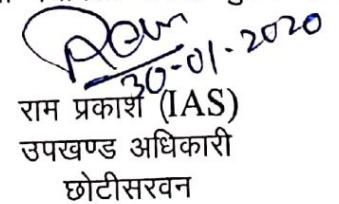 Ram
30-01-2020
राम प्रकाश (IAS)
उपखण्ड अधिकारी
छोटीसरवन